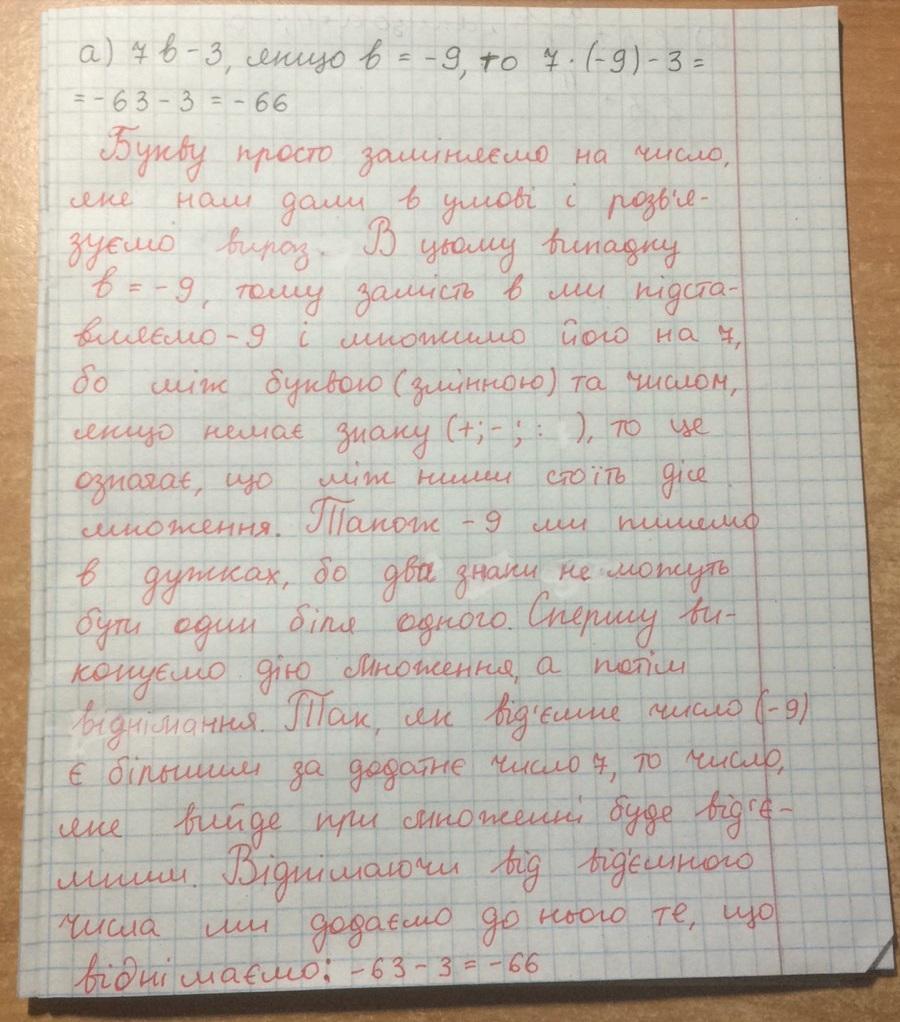 а) 7в - 3, якщо в = -9, то 7 · (-9) - 3 =
= -63 - 3 = -66
Букву просто заміняємо на число,
яке нам дали в умові і розв'я-
зуємо вираз. В цьому випадку
в = -9, тому замість в ми підста-
вляємо -9 і множимо його на 7,
бо між буквою (змінною) та числом,
якщо немає знаку (+; -; : ), то це
означає, що між ними стоїть дія
множення. Також -9 ми пишемо
в дужках, бо два знаки не можуть
бути один біля одного. Спершу ви-
конуємо дію множення, а потім
віднімання. Так, як від'ємне число (-9)
є більшим за додатнє число 7, то число,
яке вийде при множенні буде від'є-
мним. Віднімаючи від від'ємного
числа ми додаємо до нього те, що
віднімаємо: -63 - 3 = -66